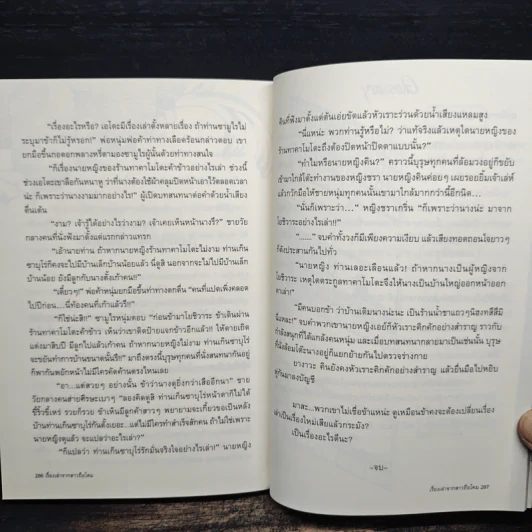 "เรื่องอะไรหรือ? เอโดะมีเรื่องเล่าตั้งหลายเรื่อง ถ้าท่านซามูไรไม่
ระบุมาข้าก็ไม่รู้หรอก!" พ่อหนุ่มพ่อค้าท่าทางเลือดร้อนกล่าวตอบ เขา
ยกมือขึ้นกอดอกพลางหรี่ตามองซามูไรผู้นั้นด้วยท่าทางสนใจ
"ก็เรื่องนายหญิงของร้านทาคาโมโตะค้าข้าวอย่างไรเล่า ช่วงนี้
ช่วงเอโดะเขาลือกันหนาหู ว่าที่นางต้องใช้ผ้าคลุมปิดหน้าเอาไว้ตลอดเวลา
น่ะ ก็เพราะว่านางงามมากอย่างไรเล่า!" ผู้เปิดบทสนทนาต่อคำด้วยน้ำเสียง
ตื่นเต้น
"งาม? เจ้ารู้ได้อย่างไรว่างาม? เจ้าเคยเห็นหน้านางรึ?" ชายวัย
กลางคนที่นั่งฟังมาตั้งแต่แรกกล่าวแทรก
"เอ้านายท่าน ถ้าหากนายหญิงร้านทาคาโมโตะไม่งาม ท่านเก็น
ซาบุโร่ก็คงจะไม่มีบ้านเล็กบ้านน้อยแล้ว นี่ดูสิ นอกจากจะไม่ไปมีบ้านเล็ก
บ้านน้อย ยังมีลูกกับนางตั้งเก้าคน!"
"เดี๋ยวๆ!" พ่อค้าหนุ่มยกมือขึ้นทำท่าทางตกตื่น "คนที่แปดเพิ่งคลอด
ไปปีก่อน....นี่ท้องคนที่เก้าแล้วรึ!"
"ก็ใช่น่ะสิ!" ซามูไรหนุ่มตอบ "ก่อนข้ามาโยชิวาระ ข้าเดินผ่าน
ร้านทาคาโมโตะค้าข้าว เห็นว่าเขาติดป้ายแจกข้าวอีกแล้ว!! ให้ตายเถิด
แต่งมาสิบปี มีลูกไปแล้วเก้าคน ถ้าหากนายหญิงไม่งาม ท่านเก็นซาบุโร่
จะขยันทำการบ้านขนาดนั้นรึ!" มาถึงตรงนี้บุรุษทุกคนที่นั่งสนทนากันอยู่
ก็พากันพยักหน้าไม่มีใครคัดค้านตรงไหนเลย
"อา...แต่สวยๆ อย่างนั้น ข้าว่านางดุยิ่งกว่าเสืออีกนา" ชาย
วัยกลางคนส่ายศีรษะเบาๆ "ลองคิดดูสิ ท่านเก็นซาบุโร่หน้าตาก็ไม่ได้
ขี้ริ้วขี้เหร่ รวยก็รวย ข้าเห็นมีลูกค้าสาวๆ พยายามจะเกี้ยวขอเป็นหลัง
บ้านท่านเก็นซาบุโร่กันตั้งเยอะ...แต่ไม่มีใครทำสำเร็จสักคน ถ้าไม่ใช่เพราะ
นายหญิงดุแล้ว จะแปลว่าอะไรเล่า?"
"ก็แปลว่า ท่านเก็นซาบุโร่รักมั่นจริงใจอย่างไรเล่า!" นายหญิง
286 เรื่องเล่าจากดาวเรือโคม
คินที่ฟังมาตั้งแต่ต้นเอ่ยขัดแล้วหัวเราะร่วนด้วยน้ำเสียงแหลมสูง
"นี่แหน่ะ พวกท่านรู้หรือไม่? ว่าแท้จริงแล้วเหตุใดนายหญิงของ
ร้านทาคาโมโตะถึงต้องปิดหน้าปิดตาแบบนั้น?"
"ทำไมหรือนายหญิงคิน?" คราวนี้บุรุษทุกคนที่ล้อมวงอยู่ก็ขยับ
เข้ามาใกล้โต๊ะทำงานของหญิงชรา นายหญิงคินค่อยๆ เผยรอยยิ้มเจ้าเล่ห์
แล้วกวักมือให้ชายหนุ่มทุกคนนั้นเขามาใกล้มากกว่านี้อีกนิด...
"นั่นก็เพราะว่า...." หญิงชราเกริ่น "ก็เพราะว่านางน่ะ มาจาก
โยชิวาระอย่างไรเล่า!!"
"......" จบคำทั้งวงก็มีเพียงความเงียบ แล้วเสียงทอดถอนใจยาวๆ
ก็ดังประสานกันไปทั่ว
"นายหญิง ท่านเลอะเลือนแล้ว! ถ้าหากนางเป็นผู้หญิงจาก
โยชิวาระ เหตุใดตระกูลทาคาโมโตะจึงให้นางเป็นบ้านใหญ่ออกหน้าออก
ตาเล่า!"
"มีคนบอกข้า ว่าบ้านเดิมนางน่ะนะ เป็นร้านน้ำชาแถวๆนิฮงทสึสึมิ
นี่แหละ!" จบคำพวกเขานายหญิงเอย์ก็หัวเราะคิกคักอย่างสำราญ ราวกับ
กำลังสนุกที่ได้แกล้งคนหนุ่ม และเมื่อบทสนทนากลายมาเป็นเช่นนั้น บุรุษ
ที่นั่งล้อมโต๊ะนางอยู่ก็แยกย้ายกันไปตรวจร่างกาย
ยางาวะ คินยังคงหัวเราะคิกคักอย่างสำราญ แล้วยื่นมือไปหยิบ
พู่กันมาลงบัญชี
มาสะ...พวกเขาไม่เชื่อข้าแหน่ะ ดูเหมือนข้าคงจะต้องเปลี่ยนเรื่อง
เล่าเป็นเรื่องใหม่เสียแล้วกระมัง?
เป็นเรื่องอะไรดีนะ?
-จบ-
เรื่องเล่าจากดาวเรือโคม 287